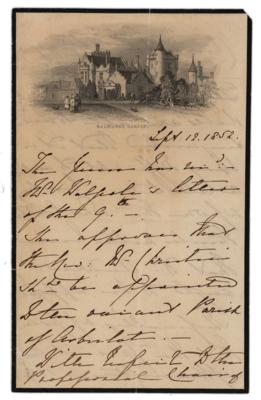 BALMORAL CASTLE.
Sept 12. 1852.
The Queen has rec.d
Mr. Walpole's letter
of the 9th
She approves that
the Rev: Mr. Christie
shd. be appointed
to the vacant Parish
of Arbirlot. —
With respect to the
Professional Chair of